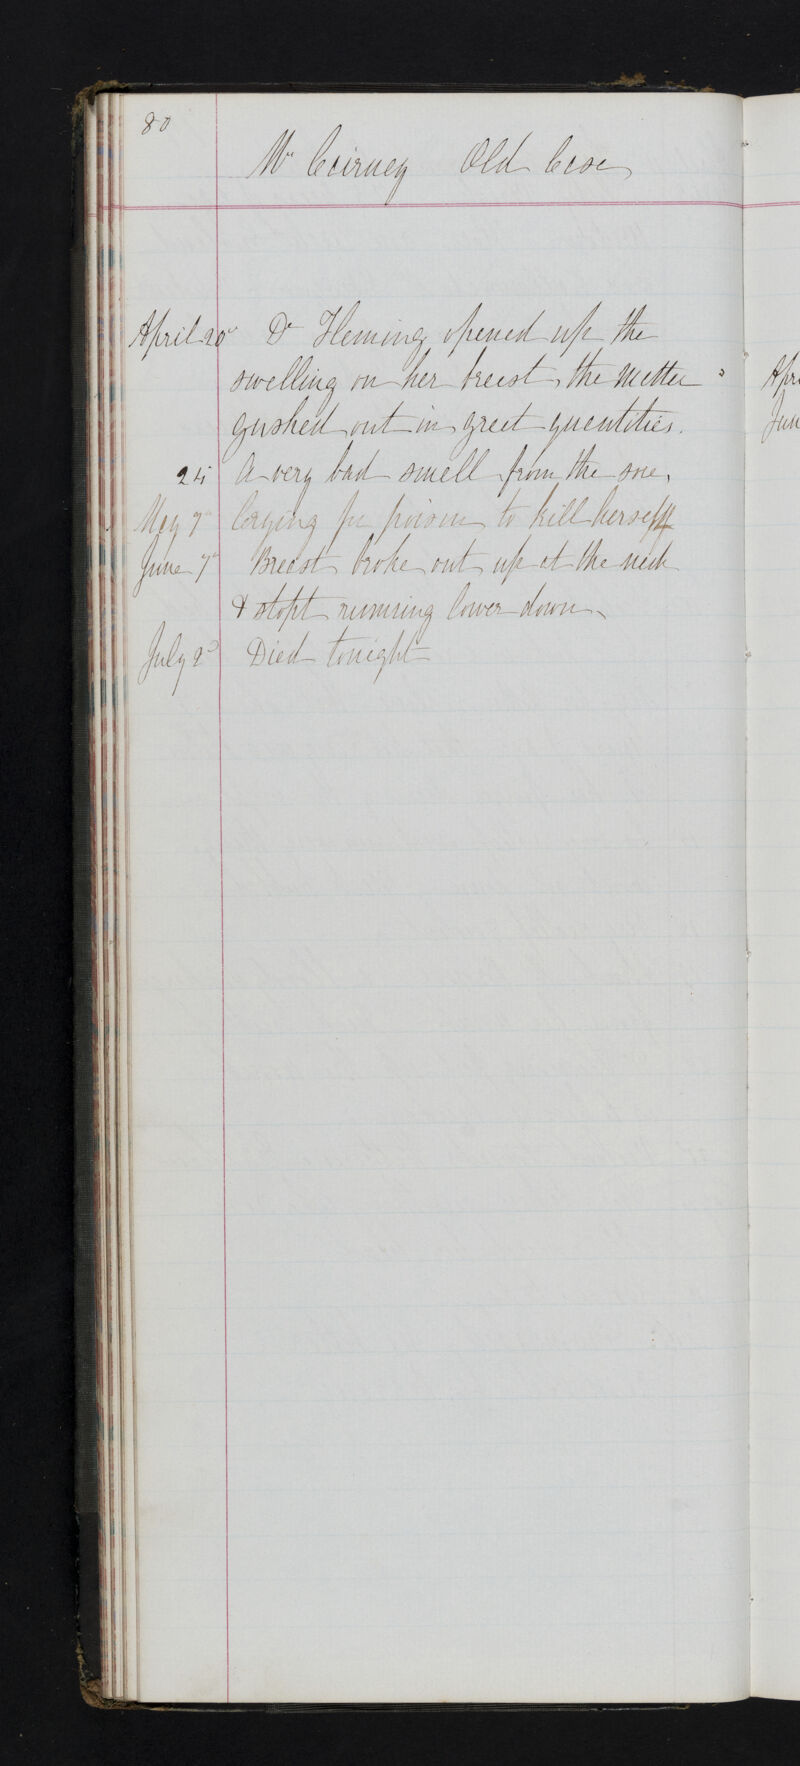 80
Mrs Cairney Old Case
April 20th Dr Fleming opened up the
swelling on her breast, the matter
gushed out in great quantities.
25 A very bad smell from the sore.
May 7th Crying for poison to kill herself
June 7th Breast broke out up at the neck
& stopt running lower down
July 2d Died tonight
Apri
Jun